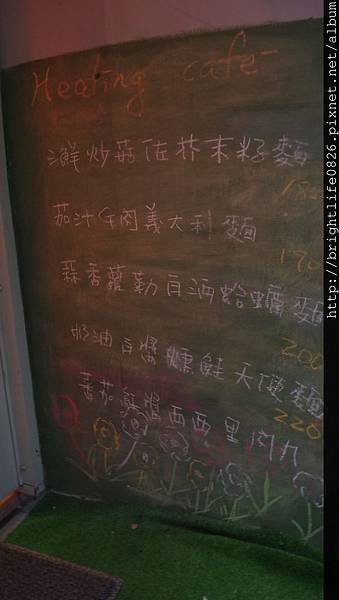 Healing cafe
鮮炒菇佐芥末籽麵
180
茄汁牛肉義大利麵
190
蒜香蘿勒白酒蛤蠣麵
200
奶油白醬燻鮭天使麵
220
蕃茄 醬西西里肉丸
http://brightlife0826.pixnet.net/album